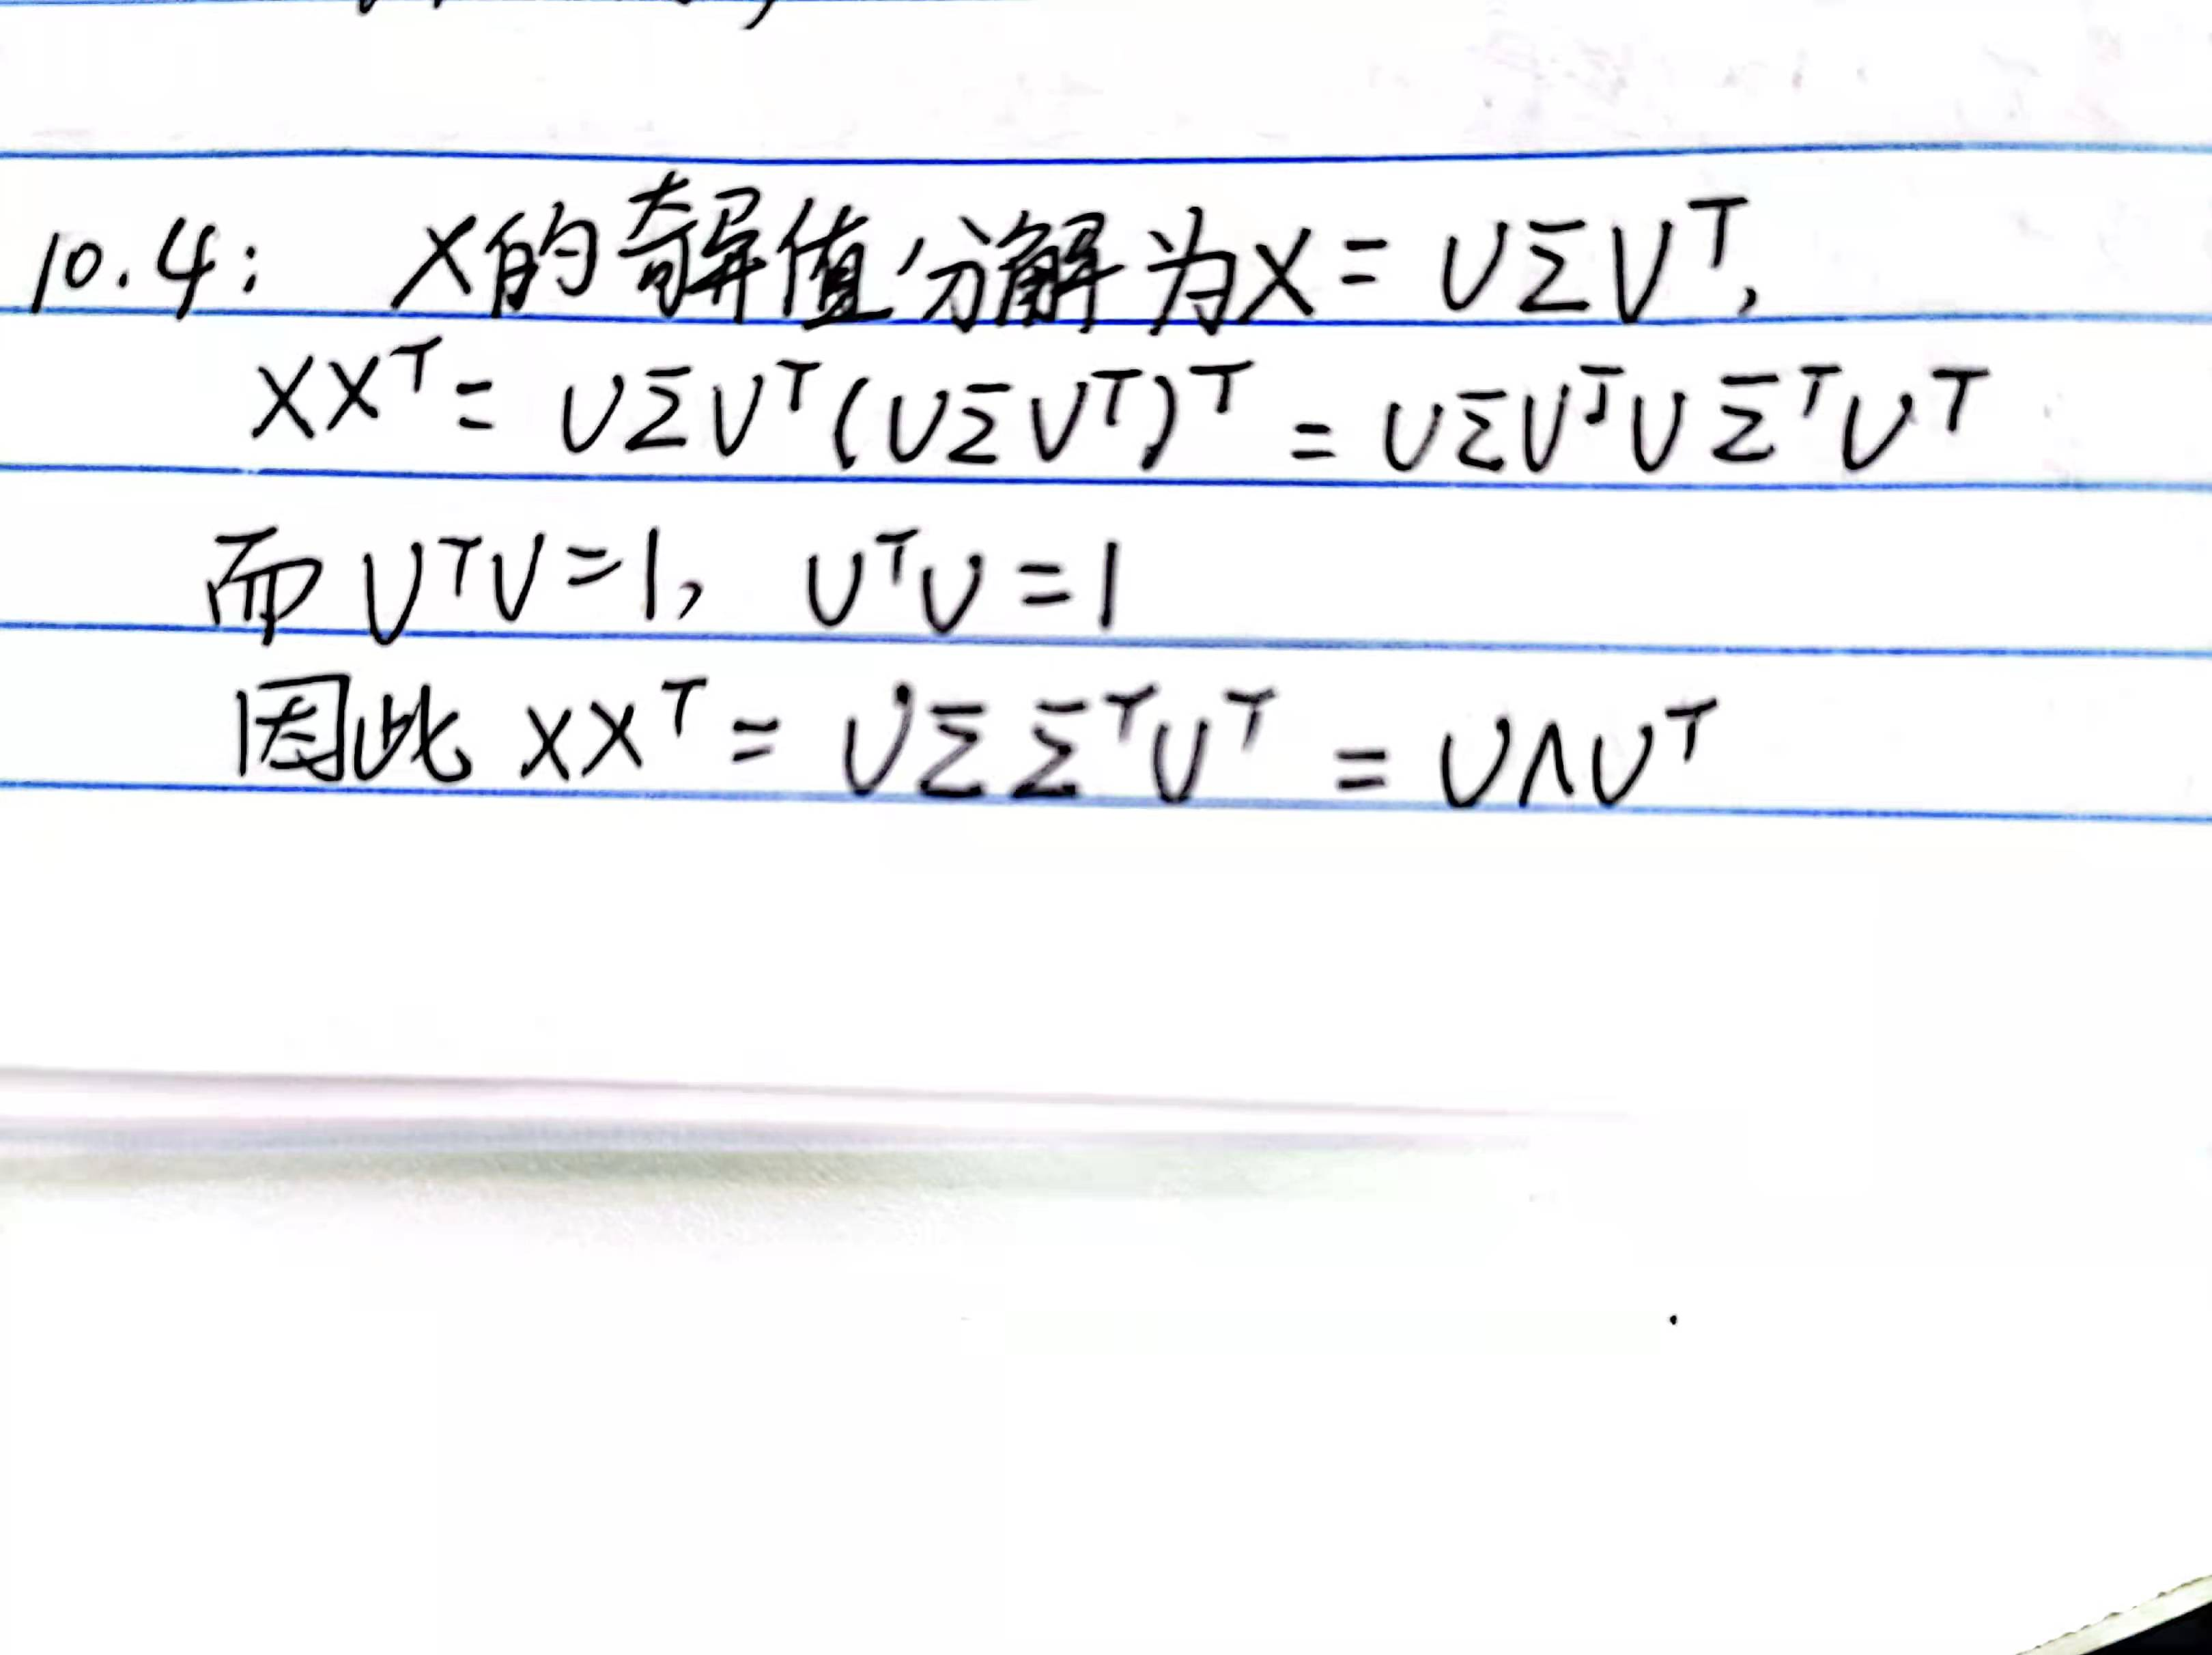 10.4: X的奇异值分解为X = UΣV^T,
XX^T = UΣV^T(UΣV^T)^T = UΣV^TVΣ^TU^T
而 V^TV=1, U^TU=1
因此 XX^T = UΣΣ^TU^T = UΛU^T